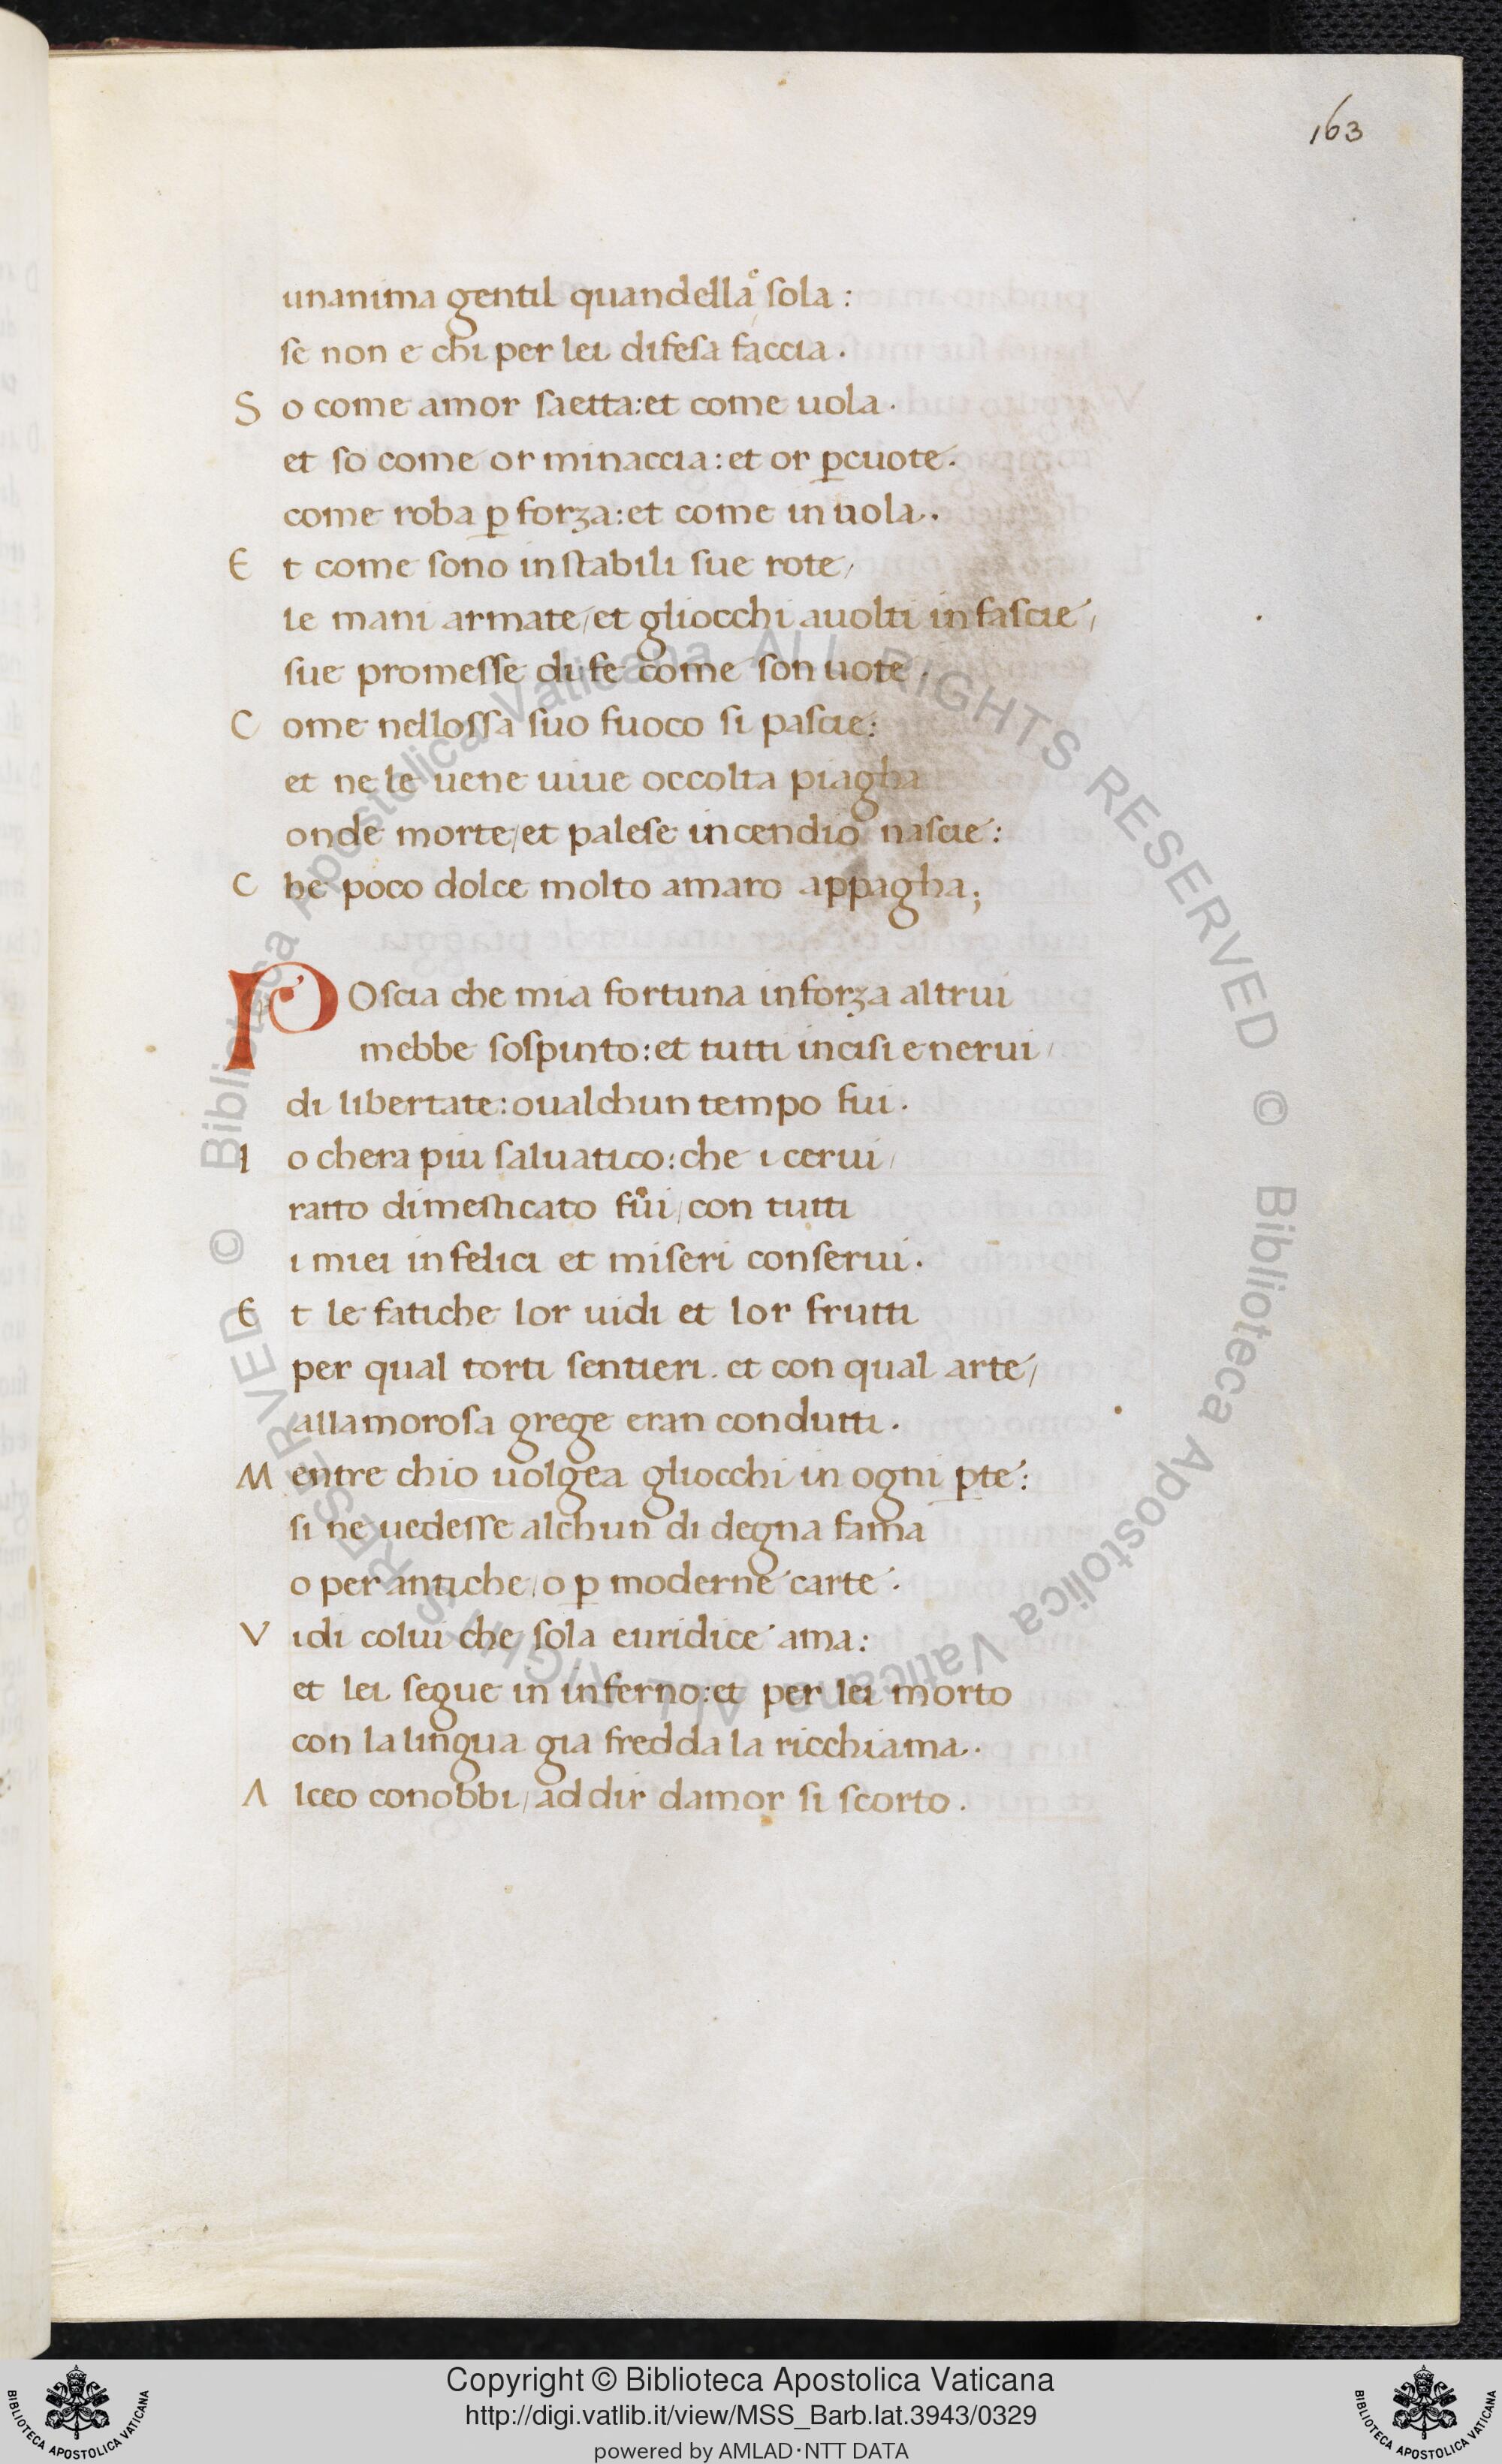 163
unanima gentil quandella e sola:
se non e chi per lei difesa faccia.
S o come amor saetta: et come uola.
et so come or minaccia: et or ꝑcuote.
come roba ꝑ forza: et come inuola.
E t come sono instabili sue rote/
le mani armate/et gliocchi auolti in fascie/
sue promesse di fe come son uote.
C ome nellossa suo fuoco si pascie:
et ne le uene uiue occolta piagha
onde morte/et palese incendio nascie:
C he poco dolce molto amaro appagha;
POscia che mia fortuna in forza altrui
mebbe sospinto: et tutti incisi e nerui/
di libertate: oualchun tempo fui.
I o chera piu saluatico: che i cerui/
ratto dimesticato fui/con tutti
i miei infelici et miseri conserui.
E t le fatiche lor uidi et lor frutti
per qual torti sentieri. et con qual arte/
allamorosa grege eran condutti.
M entre chio uolgea gliocchi in ogni ꝑte:
si ne uedesse alchun di degna fama
o per antiche/o ꝑ moderne carte.
V idi colui che sola euridice ama:
et lei segue in inferno: et per lei morto
con la lingua gia fredda la ricchiama.
A lceo conobbi/ad dir damor si scorto.
© Biblioteca Apostolica Vaticana ALL RIGHTS RESERVED © Biblioteca Apostolica Vaticana ALL RIGHTS RESERVED
Copyright © Biblioteca Apostolica Vaticana
http://digi.vatlib.it/view/MSS_Barb.lat.3943/0329
powered by AMLAD·NTT DATA
BIBLIOTECA APOSTOLICA VATICANA
BIBLIOTECA APOSTOLICA VATICANA